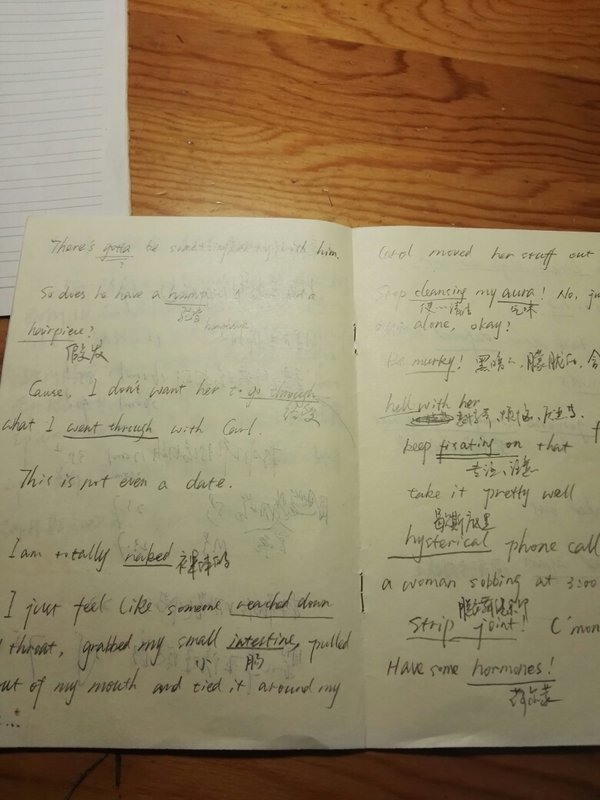 There's gotta be something wrong with him.
?
So does he have a hump and a
hairpiece?
假发
Cause, I don't want her to go through
经历
what I went through with Carl
This is not even a date.
I am totally naked 裸体的
I just feel like someone reached down
throat, grabbed my small intestine, pulled
小 肠
out of my mouth and tied it around my
...
Carol moved her stuff out
Stop cleansing my aura! No, ju
气味
alone, okay?
be murky! 黑暗
hell with her
keep fixating on that
专注、注意
take it pretty well
歇斯底里
hysterical phone call
a woman sobbing at 3:00
脱衣舞俱乐部
Strip joint! C'mon
Have some hormones!
荷尔蒙